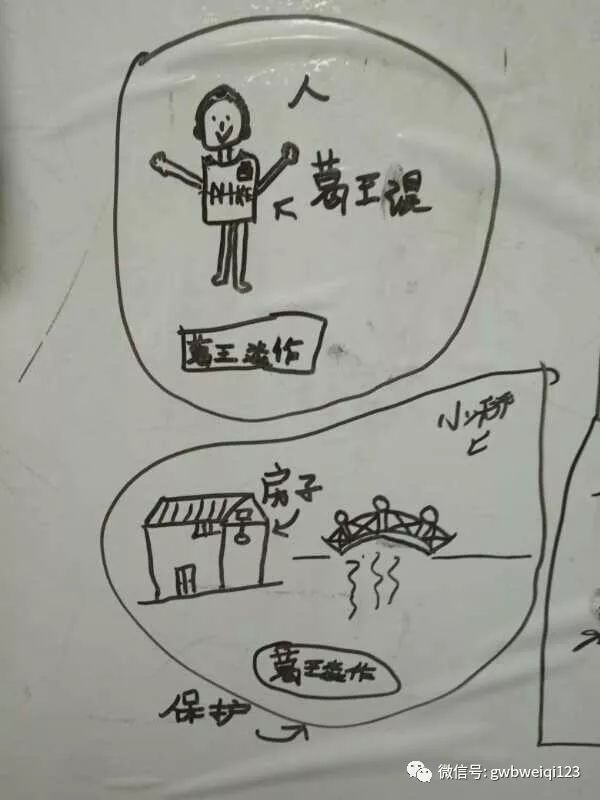 人
葛王混
葛王造作
小桥
房子
葛王造作
保护
微信号: gwbweiqi123